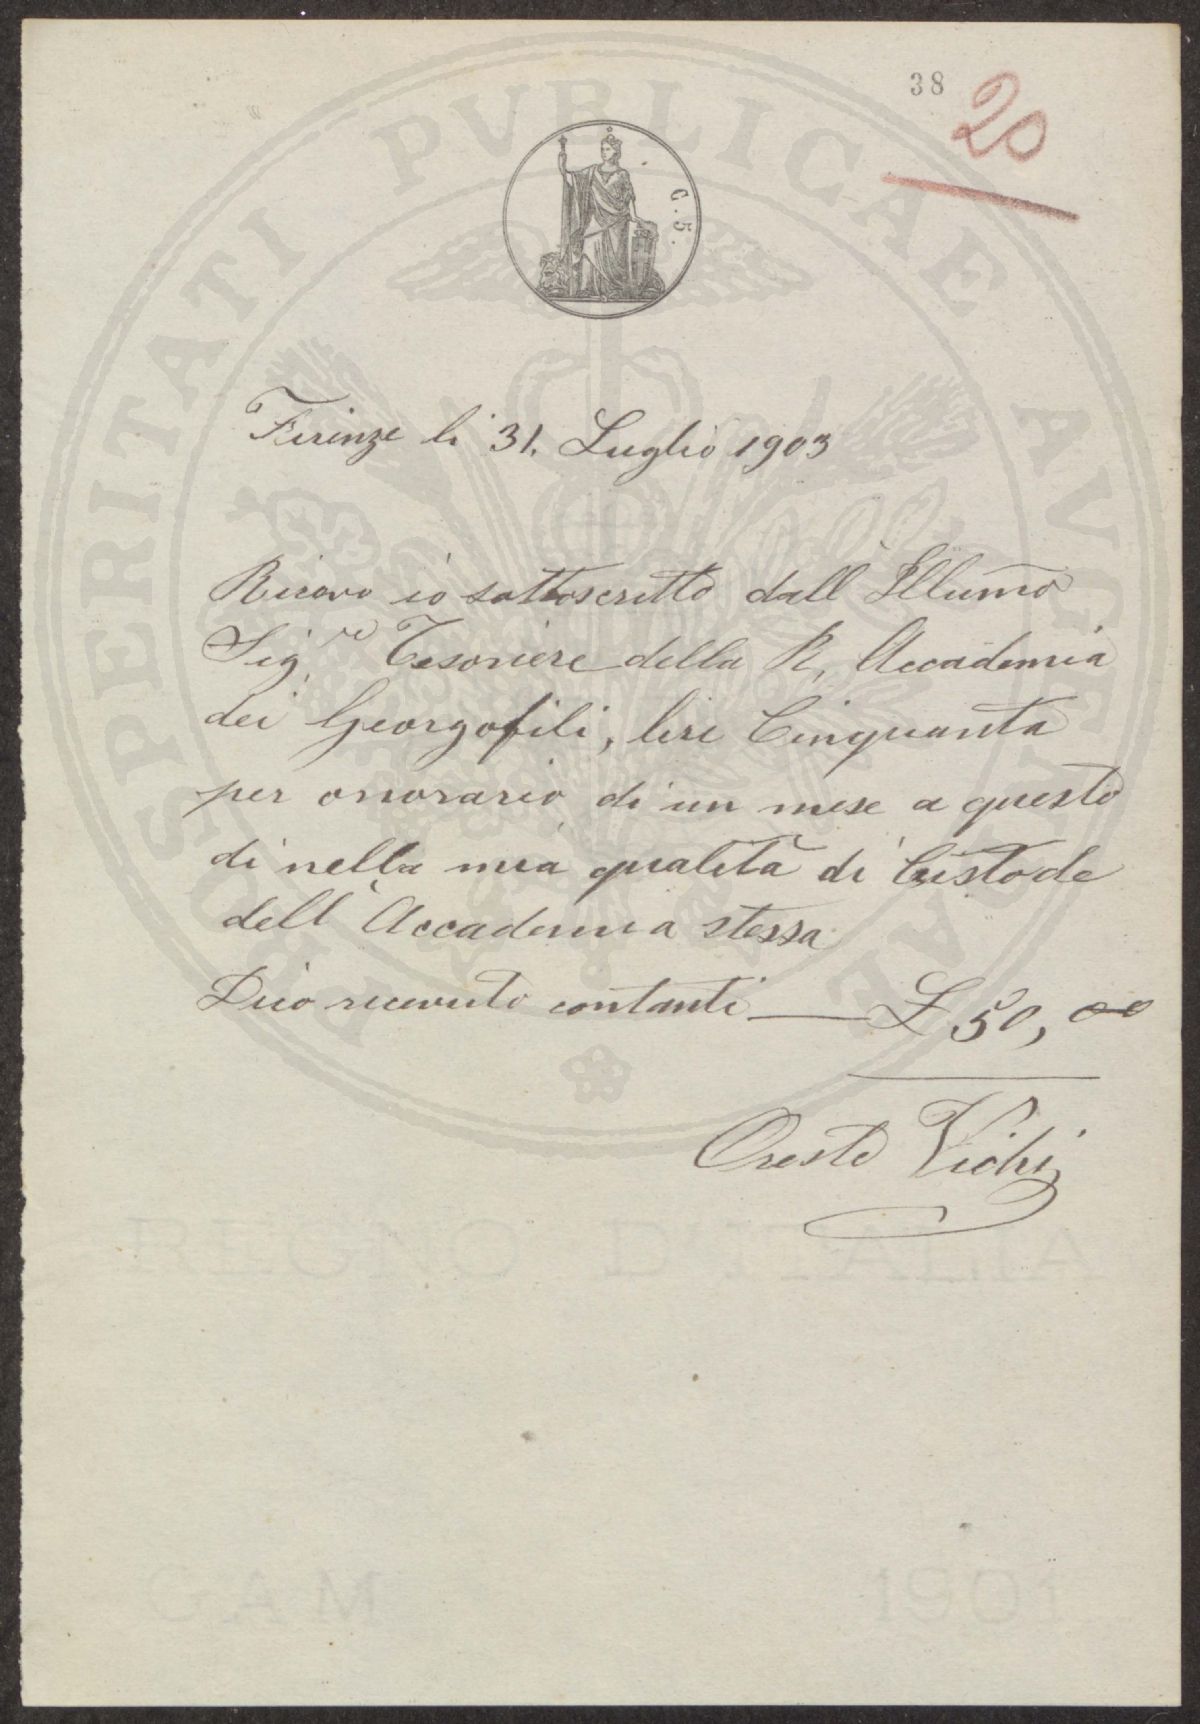 38
20
G. 5.
PROSPERITATI PVBLICAE AVGENDAE
Firenze li 31. Luglio 1903
Ricevo io sottoscritto dall' Illumo
Sigre Tesoriere della R. Accademia
dei Georgofili, lire Cinquanta
per onorario di un mese a questo
dì nella mia qualità di Custode
dell' Accademia stessa
Dico ricevuto contanti — £ 50,00
Oreste Vichi
REGNO D'ITALIA
GAM 1901